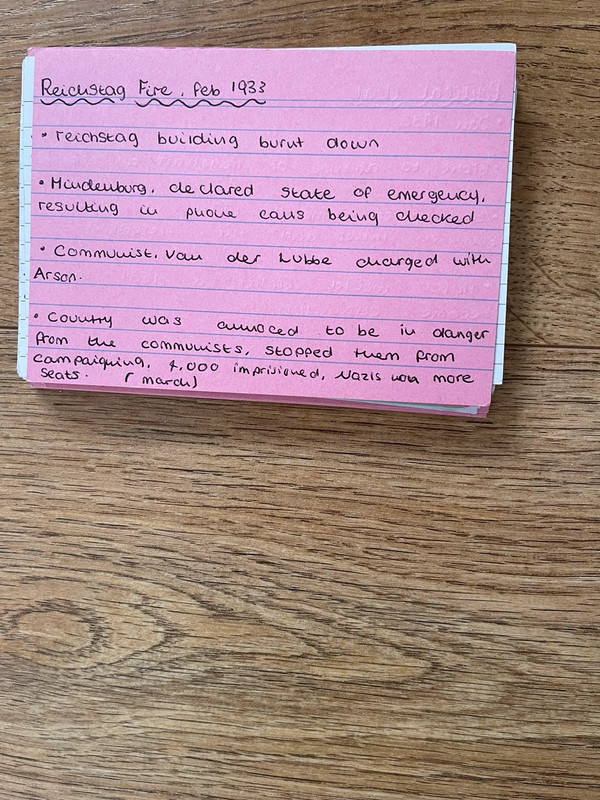 Reichstag Fire, Feb 1933
• reichstag building burnt down
• Hindenburg, declared state of emergency,
resulting in phone calls being checked
• Communist, Van der Lubbe charged with
Arson.
• Country was annoced to be in danger
from the communists, stopped them from
campaigning, 4,000 imprisioned, Nazis won more
seats. (march)